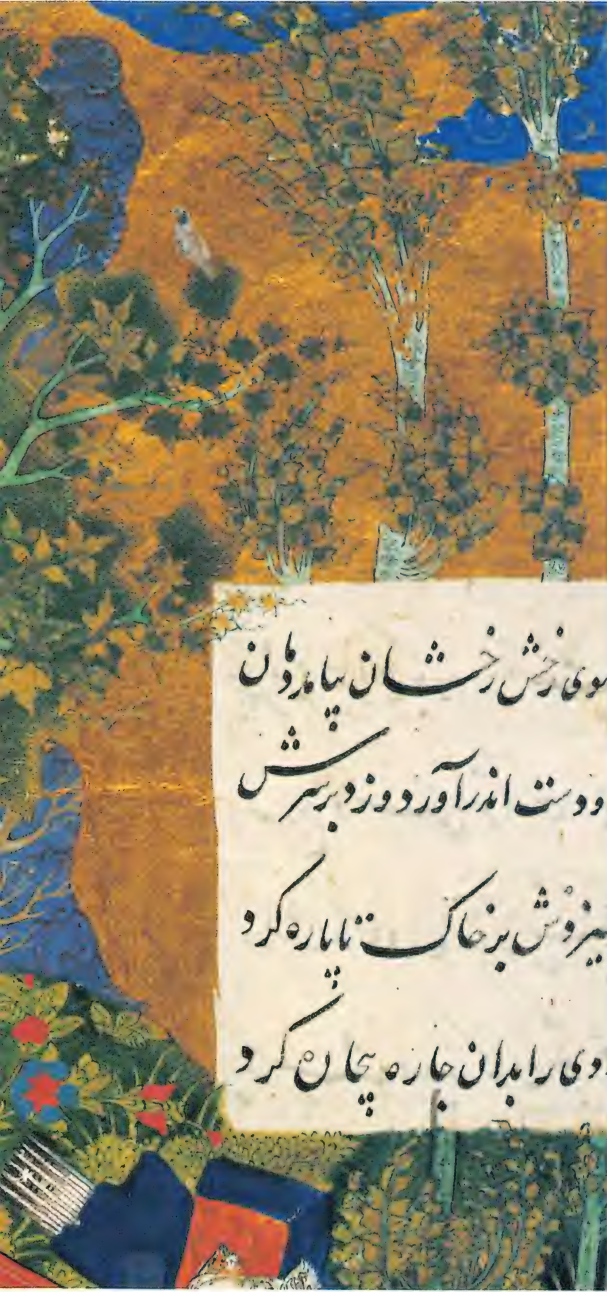 سوی رخش رخشان بیامد دمان
ودست اندر آورد و زد بر سرش
زدش بر خاک تا پاره کرد
ددی را بدان چاره بیچاره کرد